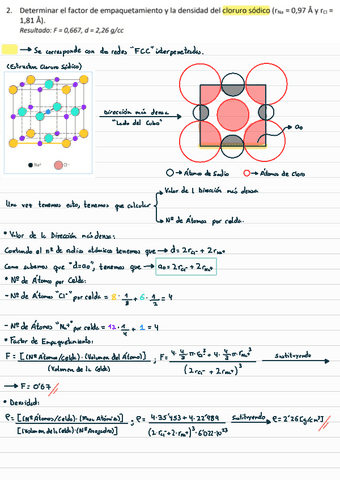 2. Determinar el factor de empaquetamiento y la densidad del cloruro sódico (rNa = 0,97 Å y rCl =
1,81 Å).
Resultado: F = 0,667, d = 2,26 g/cc
→ Se corresponde con dos redes "FCC" interpenetradas.
(Estructura Cloruro Sódico)
Dirección más densa
"Lado del Cubo"
a₀
Na⁺ Cl⁻
→ Átomo de Sodio → Átomo de Cloro
Una vez tenemos esto, tenemos que calcular
Valor de la Dirección más densa
Nº de Átomos por celda.
• Valor de la Dirección más densa:
Contando el nº de radios atómicos tenemos que → d = 2rCl⁻ + 2rNa⁺
Como sabemos que "d=a₀", tenemos que → a₀ = 2rCl⁻ + 2rNa⁺
• Nº de Átomos por Celda:
- Nº de Átomos "Cl⁻" por celda = 8·1/8 + 6·1/2 = 4
- Nº de Átomos "Na⁺" por celda = 12·1/4 + 1 = 4
• Factor de Empaquetamiento:
F = [(Nº Átomos/Celda)·(Volumen del Átomo)] / (Volumen de la Celda) ; F = (4·4/3·π·rCl³ + 4·4/3·π·rNa⁺³) / (2rCl⁻ + 2rNa⁺)³ Sustituyendo →
→ F = 0'67
• Densidad:
ρ = [(Nº Átomos/Celda)·(Masa Atómica)] / [(Volumen de la Celda)·(Nº Avogadro)] ; ρ = (4·35'453 + 4·22'989) / ((2·rCl⁻ + 2·rNa⁺)³·6'022·10²³) Sustituyendo → ρ = 2'26 [g/cm³]